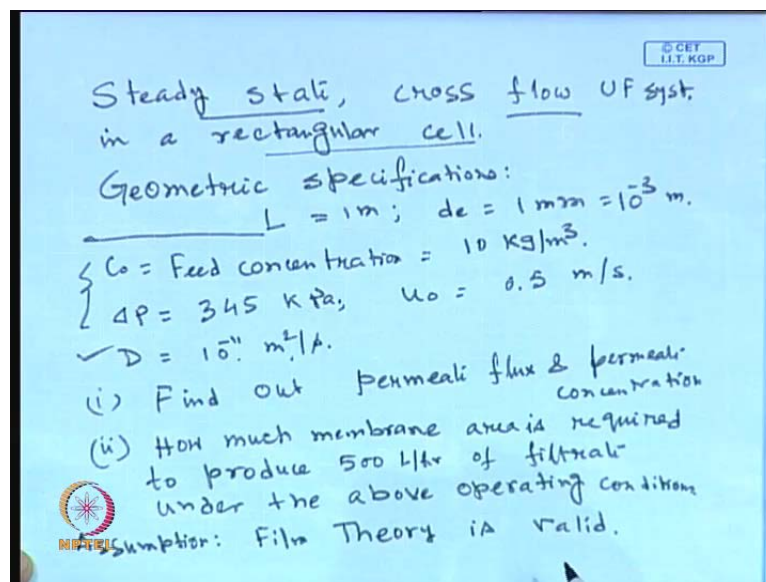 © CET
I.I.T. KGP
Steady stati, cross flow UF syst.
in a rectangular cell.
Geometric specifications:
L = 1m; de = 1 mm = 10⁻³ m.
C₀ = Feed concentration = 10 kg/m³.
ΔP = 345 kPa, u₀ = 0.5 m/s.
✓ D = 10⁻¹¹ m²/s.
(i) Find out permeati flux & permeati
concentration
(ii) How much membrane area is required
to produce 500 L/hr of filtrati
under the above operating conditions
Assumption: Film Theory is valid.
NPTEL